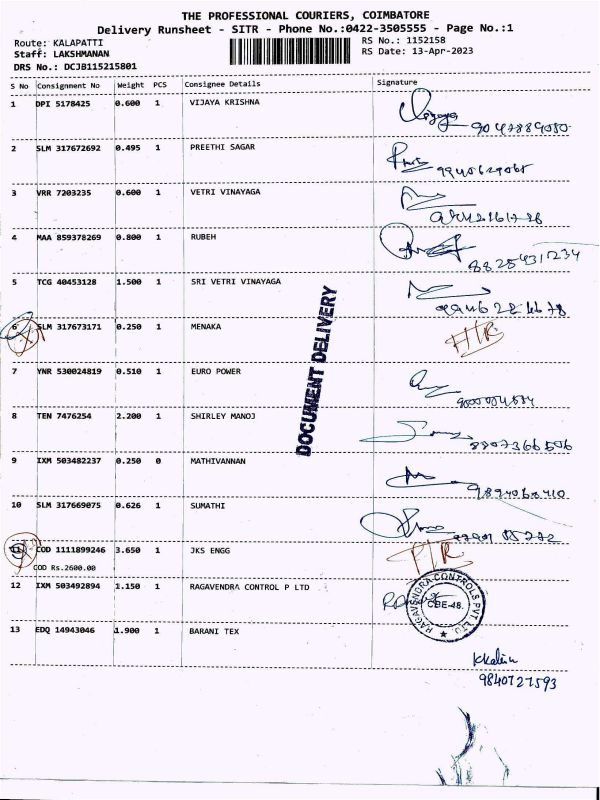 THE PROFESSIONAL COURIERS, COIMBATORE
Delivery Runsheet - SITR - Phone No.:0422-3505555 - Page No.:1
Route: KALAPATTI
RS No.: 1152158
Staff: LAKSHMANAN
RS Date: 13-Apr-2023
DRS No.: DCJB115215801
S No Consignment No Weight PCS Consignee Details Signature
1 DPI 5178425 0.600 1 VIJAYA KRISHNA
2 SLM 317672692 0.495 1 PREETHI SAGAR
3 VRR 7203235 0.600 1 VETRI VINAYAGA
4 MAA 859378269 0.800 1 RUBEH
8825431234
5 TCG 40453128 1.500 1 SRI VETRI VINAYAGA
6 SLM 317673171 0.250 1 MENAKA
DOCUMENT DELIVERY
7 YNR 530024819 0.510 1 EURO POWER
8 TEN 7476254 2.200 1 SHIRLEY MANOJ
8807366506
9 IXM 503482237 0.250 0 MATHIVANNAN
10 SLM 317669075 0.626 1 SUMATHI
11 COD 1111899246 3.650 1 JKS ENGG
COD Rs.2600.00
12 IXM 503492894 1.150 1 RAGAVENDRA CONTROL P LTD
RAGAVENDRA CONTROLS PVT LTD.
CBE-48.
13 EDQ 14943046 1.900 1 BARANI TEX
9840727593